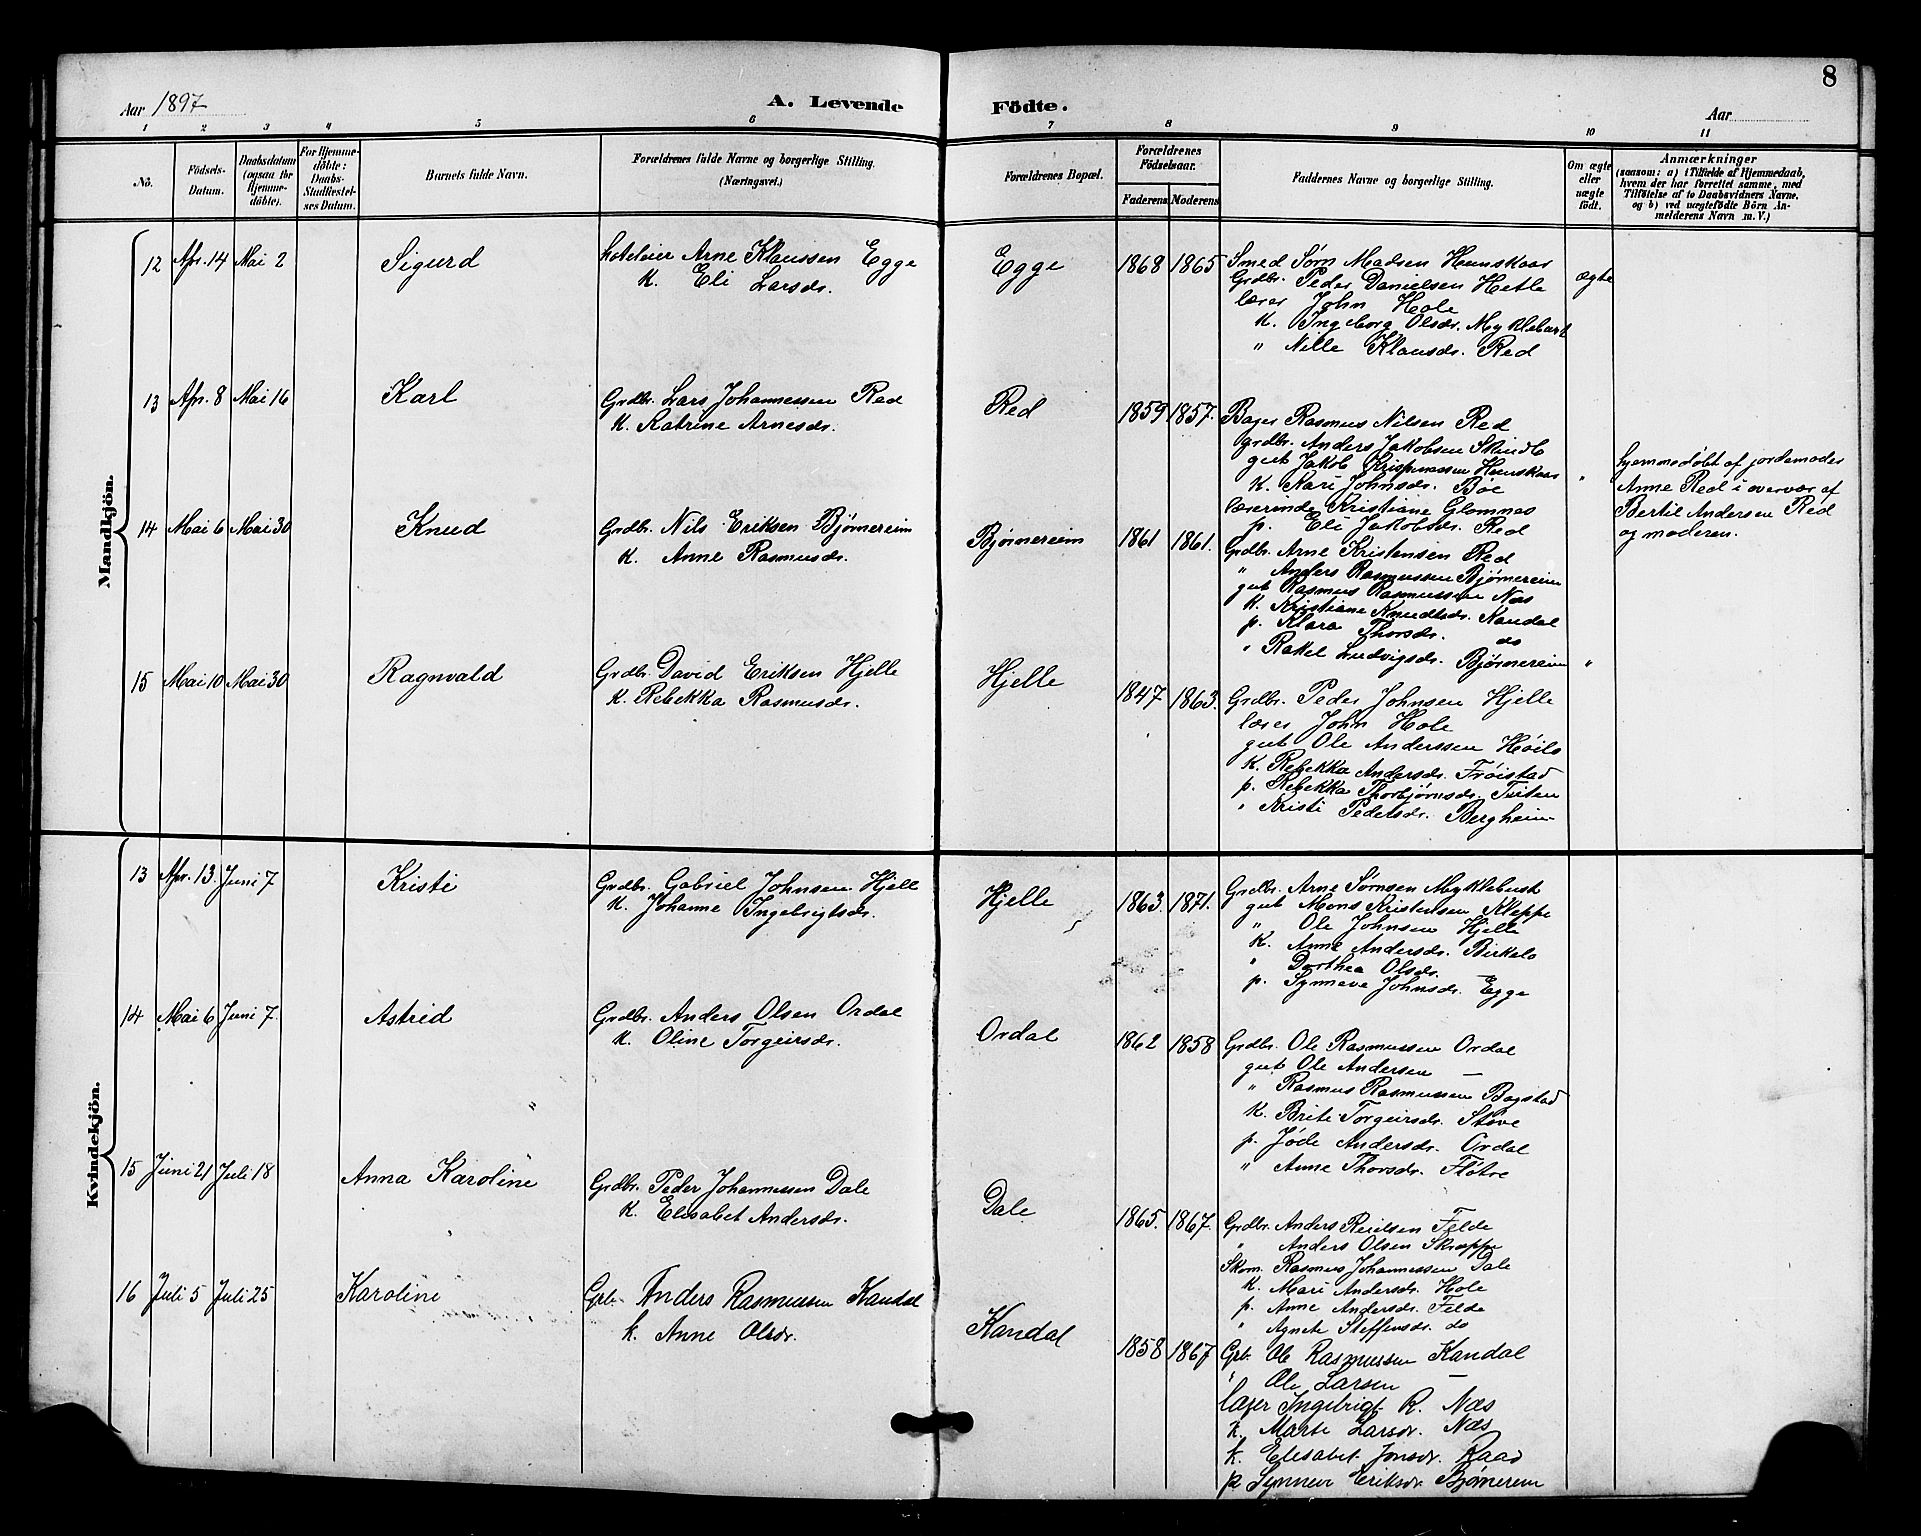 8
Aar 1897
A. Levende Födte.
Aar
1 2 3 4 5 6 7 8 9 10 11
No.
Födsels-Datum.
Daabsdatum (ogsaa for Hjemme-döbte).
For Hjemme-döbte: Daabs-Stadfæstel-ses Datum.
Barnets fulde Navn.
Forældrenes fulde Navne og borgerlige Stilling.
(Næringsvei.)
Forældrenes Bopæl.
Forældrenes Födselsaar.
Faderens Moderens
Faddernes Navne og borgerlige Stilling.
Om ægte eller uægte födt.
Anmærkninger
(saasom: a) i Tilfælde af Hjemmedaab,
hvem der har forrettet samme, med
Tilföielse af to Daabsvidners Navne.
og b) ved uægtefödte Börn An-
melderens Navn m. V.)
Mandkjön.
12 Apr. 14 Mai 2 Sigurd
Hoteleier Arne Klaussen Egge
K. Eli Larsdr.
Egge 1868 1865
Smed Sørn Madsen Hunskaar
Grdbr. Peder Danielsen Hetle
lærer John Hole
K. Ingeborg Olsdr. Myklebust
" Nille Klausdr. Red
ægte
13 Apr. 8 Mai 16 Karl
Grdbr. Lars Johannessen Red
K. Katrine Arnesdr.
Red 1859 1857.
Bager Rasmus Nilsen Red
grdbr. Anders Jakobsen
gut Jakob Hunskaar
K. Kari Johnsdr. Bøe
lærerinde Kristiane Glomnes
p. Eli Jakobsdr. Red
"
hjemmedøbt af jordemoder
Anne Red i overvær af
Bertil Andersen Red
og moderen.
14 Mai 6 Mai 30 Knud
Grdbr. Nils Eriksen Bjørnereim
K. Anne Rasmusdr.
Bjørnereim 1861 1861.
Grdbr. Arne Kristensen Red
" Anders Rasmussen Bjørnereim
gut Rasmus Rasmussen Næs
K. Kristiane Knudtsdr. Kandal
p. Klara Thorsdr. do
" Rakel Ludvigsdr. Bjørnereim
"
15 Mai 10 Mai 30 Ragnvald
Grdbr. David Eriksen Hjelle
K. Rebekka Rasmusdr.
Hjelle 1847 1863.
Grdbr. Peder Johnsen Hjelle
lærer John Hole
gut Ole Anderssen Høilo
K. Rebekka Andersdr. Frøistad
p. Rebekka Thorbjørnsdr. Tviten
" Kristi Pedersdr. Bergheim
Kvindekjön.
13 Apr. 13. Juni 7 Kristi
Grdbr. Gabriel Johnsen Hjelle
K. Johanne Ingebrigtsdr.
Hjelle 1863. 1871.
Grdbr. Arne Sørnsen Myklebust
gut Mons Kristensen Kleppe
" Ole Johnsen Hjelle
K. Anne Andersdr. Birkelo
" Dorthea Olsdr. —
p. Synneve Johnsdr. Egge
14 Mai 6 Juni 7. Astrid
Grdbr. Anders Olsen Ordal
K. Oline Torgeirsdr.
Ordal 1862 1858
Grdbr. Ole Rasmussen Ordal
gut Ole Andersen —
" Rasmus Rasmussen Bogstad
K. Brite Torgeirsdr. Støve
p. Jøde Andersdr. Ordal
" Anne Thorsdr. Fløtre
15 Juni 21 Juli 18 Anna Karoline
Grdbr. Peder Johannessen Dale
K. Elisabet Andersdr.
Dale 1865. 1867.
Grdbr. Anders Felde
" Anders Olsen Skrøppe
Skom. Rasmus Johannessen Dale
K. Mari Andersdr. Hole
p. Anne Andersdr. Felde
" Agnete Steffensdr. do
16 Juli 5 Juli 25 Karoline
Grb. Anders Rasmussen Kandal
k. Anne Olsdr.
Kandal 1858 1867
Grb. Ole Rasmussen Kandal
" Ole Larsen —
Lærer Ingebrigt R. Næs
k. Marte Larsdr. Næs
k. Elisabet Jonsdr. Raad
p. Synneve Eriksdr. Bjørnereim